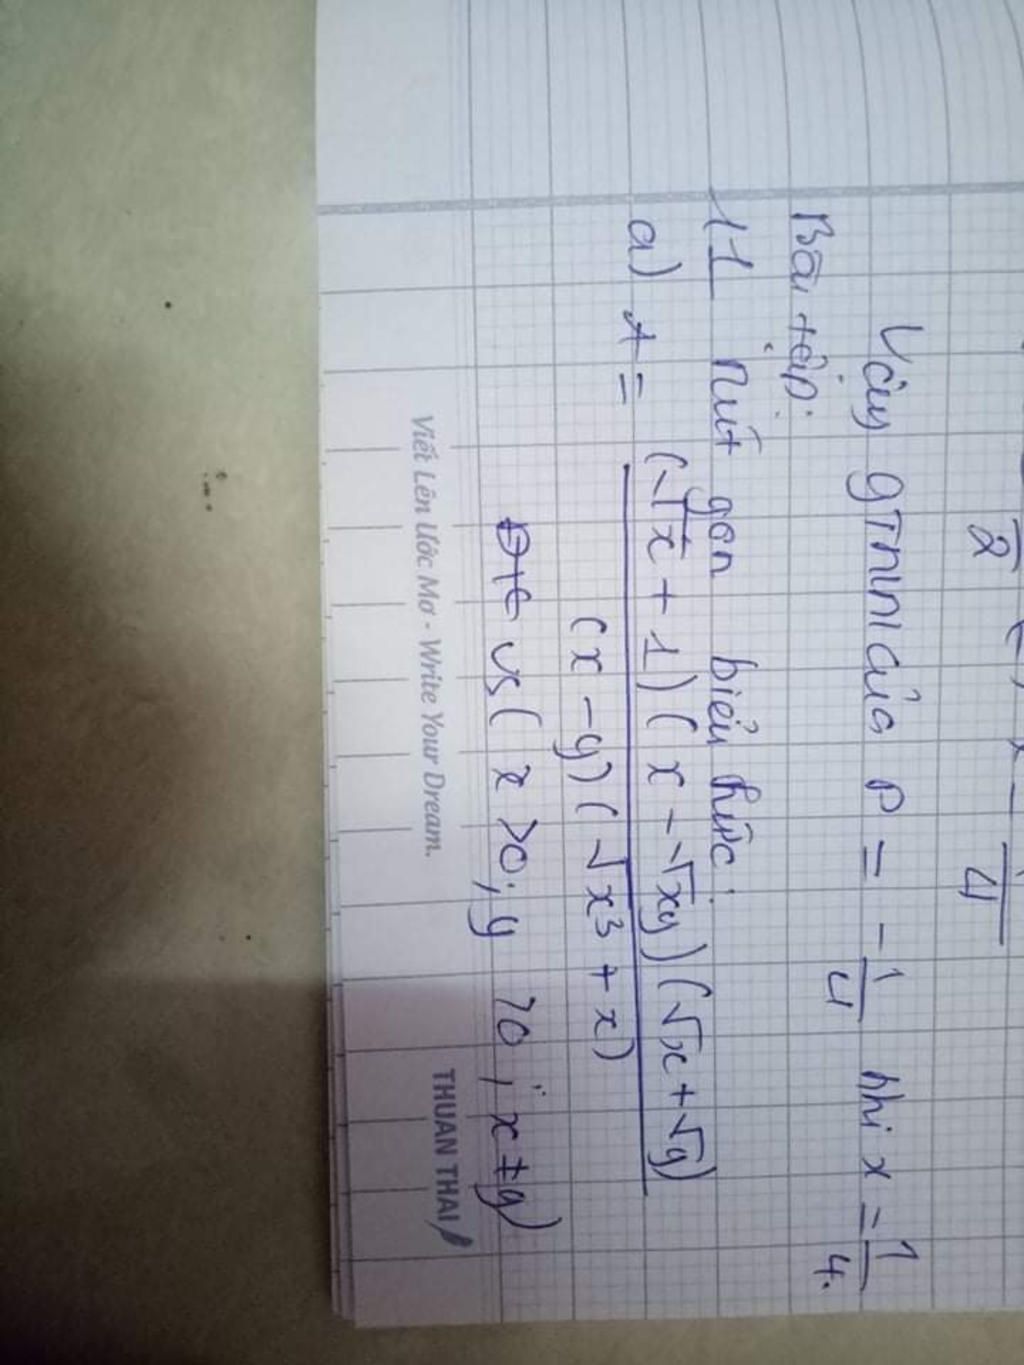 2
4
Vậy GTNN của P = -1/4 khi x = 1/4.
Bài tập:
11 Rút gọn biểu thức:
a) A = (√x + 1)(x - √xy)(√x + √y)
(x - y)(√x³ + x)
vs (x >0; y >0; x ≠ y)
Viết Lên Ước Mơ - Write Your Dream.
THUAN THAI